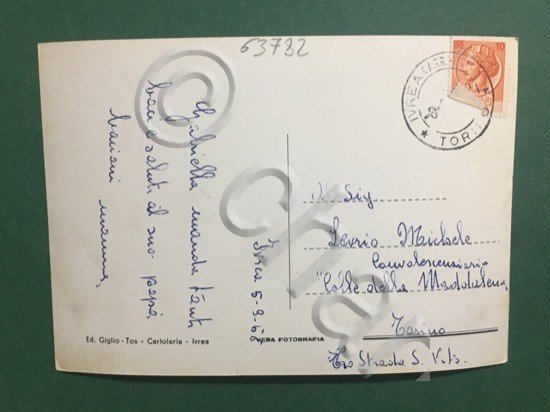 63782
10
IVREA
TORINO
Gabriella manda tanti
baci e saluti al suo papà
bacioni mamma
Ivrea 5-9-6
Sig
Michele
Convalescenziario
"Colle della Maddalena"
Torino
Strada S. Vito
Ed. Giglio - Tos - Cartoleria - Ivrea
VERA FOTOGRAFIA
© chat